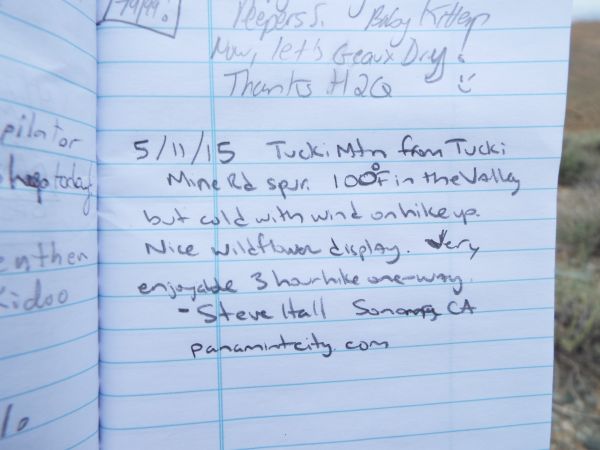 Peepers. Baby Kitten
Now, let's Geaux Dry!
Thanks H2O :)
pilator
today
enthen
Kidoo
5/11/15 Tucki Mtn from Tucki
Mine Rd spur. 100°F in the Valley
but cold with wind on hike up.
Nice wildflower display. Very
enjoyable 3 hour hike one-way.
- Steve Hall Sonoma, CA
panamintcity.com